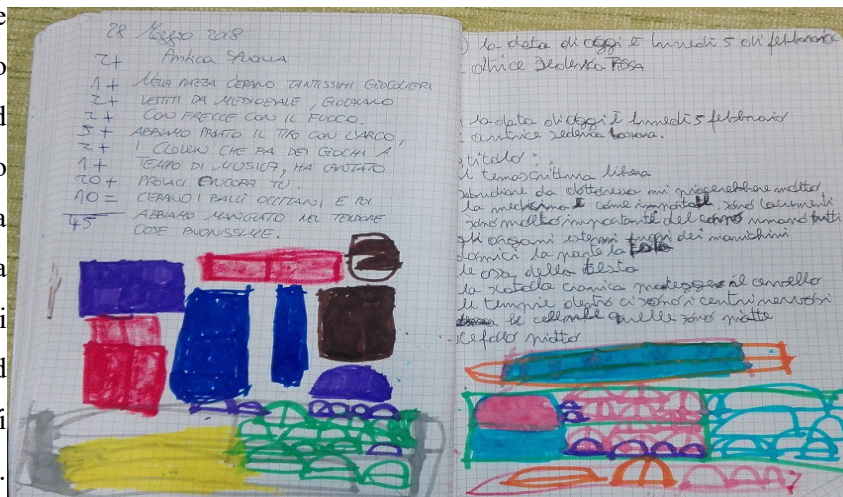 28 Maggio 2018
2+ Antica
1+ NELLA PIAZZA CERANO TANTISSIMI GIOCOLIERI
2+ VESTITI DA MEDIOEVALE, GIOCAVANO
2+ CON FRECCE CON IL FUOCO.
5+ ABBIAMO PROVATO IL TIRO CON L'ARCO,
2+ I CLOWN CHE FA DEI GIOCHI A
1+ TEMPO DI MUSICA, HA CANTATO
20+ PROVACI ENCORA TU.
10= CERANO I BALLI OCCITANI E POI
45 ABBIAMO MANGIATO NEL TENDONE
COSE BUONISSIME.
la data di oggi è lunedì 5 di febbraio
la data di oggi è lunedì 5 febbraio
autrice
titolo:
tema scrittura libera
da dottoressa mi piacerebbere molto
la medicina è come
sono molto importante del corpo umano tutti
gli organi esterni fuori dei manichini
la parte la testa
le ossa della testa
la scatola cranica protegge il cervello
le tempie dentro ci sono i centri nervosi
le cellule quelle sono piatte
piatto
e
o
d
o
a
a
i
d
í
.